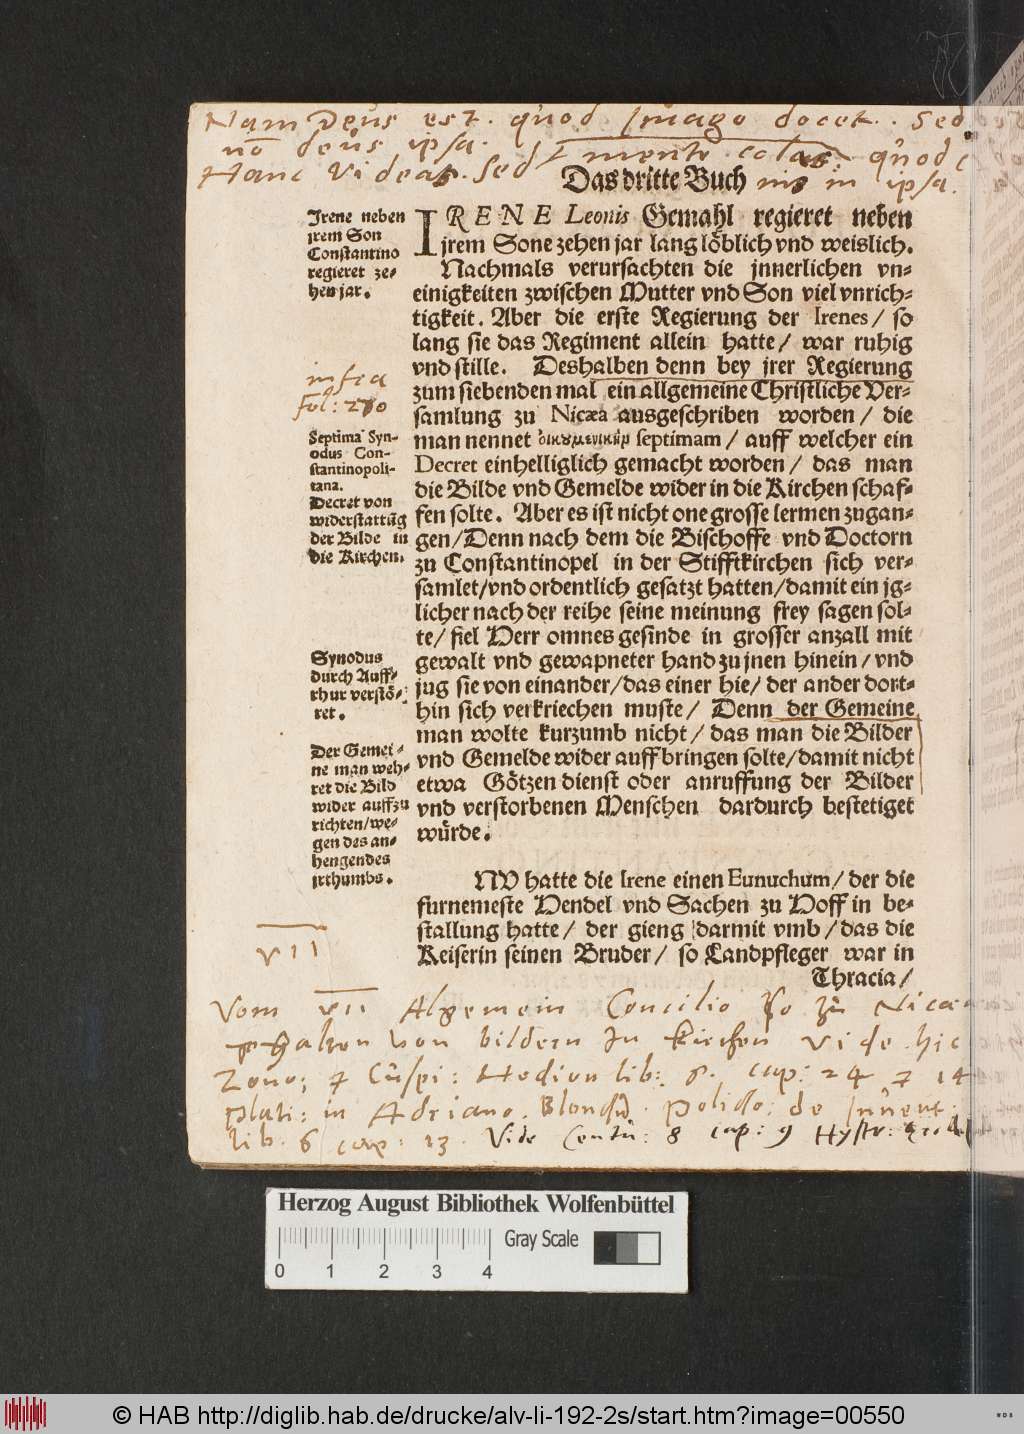 Nam Deus est. quod Imago docet. Sed
nō deus ipsa.
Hanc Videas. sed mente colas quod
nis in ipsa.
Das dritte Buch
Irene neben
jrem Son
Constantino
regieret ze-
hen jar.
IRENE Leonis Gemahl regieret neben
jrem Sone zehen jar lang löblich vnd weislich.
Nachmals verursachten die jnnerlichen vn-
einigkeiten zwischen Mutter vnd Son viel vnrich-
tigkeit. Aber die erste Regierung der Irenes/ so
lang sie das Regiment allein hatte/ war ruhig
vnd stille. Deshalben denn bey jrer Regierung
zum siebenden mal ein allgemeine Christliche Ver-
samlung zu Nicæa ausgeschriben worden/ die
man nennet septimam/ auff welcher ein
Decret einhelliglich gemacht worden/ das man
die Bilde vnd Gemelde wider in die Kirchen schaf-
fen solte. Aber es ist nicht one grosse lermen zugan-
gen/ Denn nach dem die Bischoffe vnd Doctorn
zu Constantinopel in der Stifftkirchen sich ver-
samlet/ vnd ordentlich gesatzt hatten/ damit ein jg-
licher nach der reihe seine meinung frey sagen sol-
te/ fiel Herr omnes gesinde in grosser anzall mit
gewalt vnd gewapneter hand zu jnen hinein/ vnd
jug sie von einander/ das einer hie/ der ander dort-
hin sich verkriechen muste/ Denn der Gemeine
man wolte kurzumb nicht/ das man die Bilder
vnd Gemelde wider auffbringen solte/ damit nicht
etwa Götzen dienst oder anruffung der Bilder
vnd verstorbenen Menschen dardurch bestetiget
würde.
infra
fol: 270
Septima Syn-
odus Con-
stantinopoli-
tana.
Decret von
widerstattūg
der Bilde in
die Kirchen.
Synodus
durch Auff-
rhur verstö-
ret.
Der Gemei-
ne man weh-
ret die Bild
wider auffzu
richten/ we-
gen des an-
hengendes
jrthumbs.
NV hatte die Irene einen Eunuchum/ der die
furnemeste Hendel vnd Sachen zu Hoff in be-
stallung hatte/ der gieng darmit vmb/ das die
Keiserin seinen Bruder/ so Landpfleger war in
Thracia/
VII
Vom VII Algemein Concilio so zu Nicæa
gehalten von bildern In kirchen Vide hic
Zono; Cuspi: Hedion lib: 6. cap: 24 14
Plati: in Adriano. Blond. Polido: de Invent:
lib. 6 cap: 13. Vide Centu: 8 cap: 9
Herzog August Bibliothek Wolfenbüttel
Gray Scale
0 1 2 3 4
© HAB http://diglib.hab.de/drucke/alv-li-192-2s/start.htm?image=00550